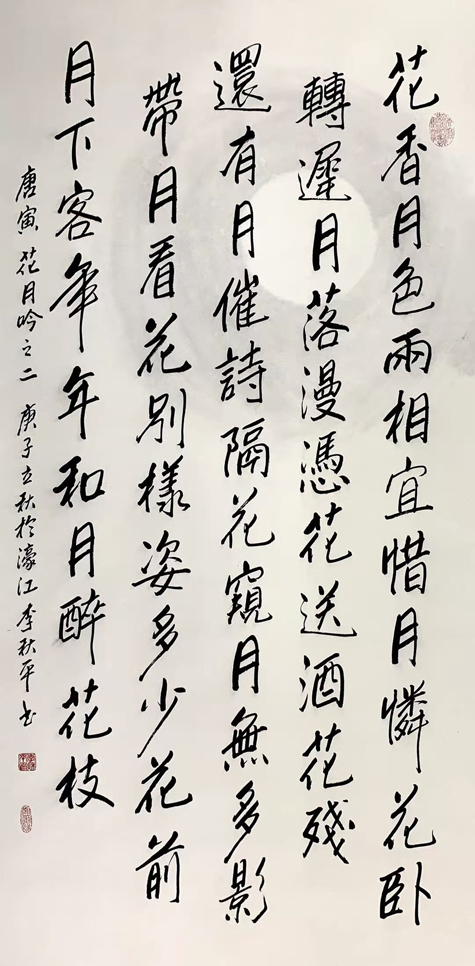 花香月色兩相宜惜月憐花臥
轉遲月落漫憑花送酒花殘
還有月催詩隔花窺月無多影
帶月看花別樣姿多少花前
月下客年年和月醉花枝
唐寅 花月吟之二 庚子立秋於濠江李秋平书